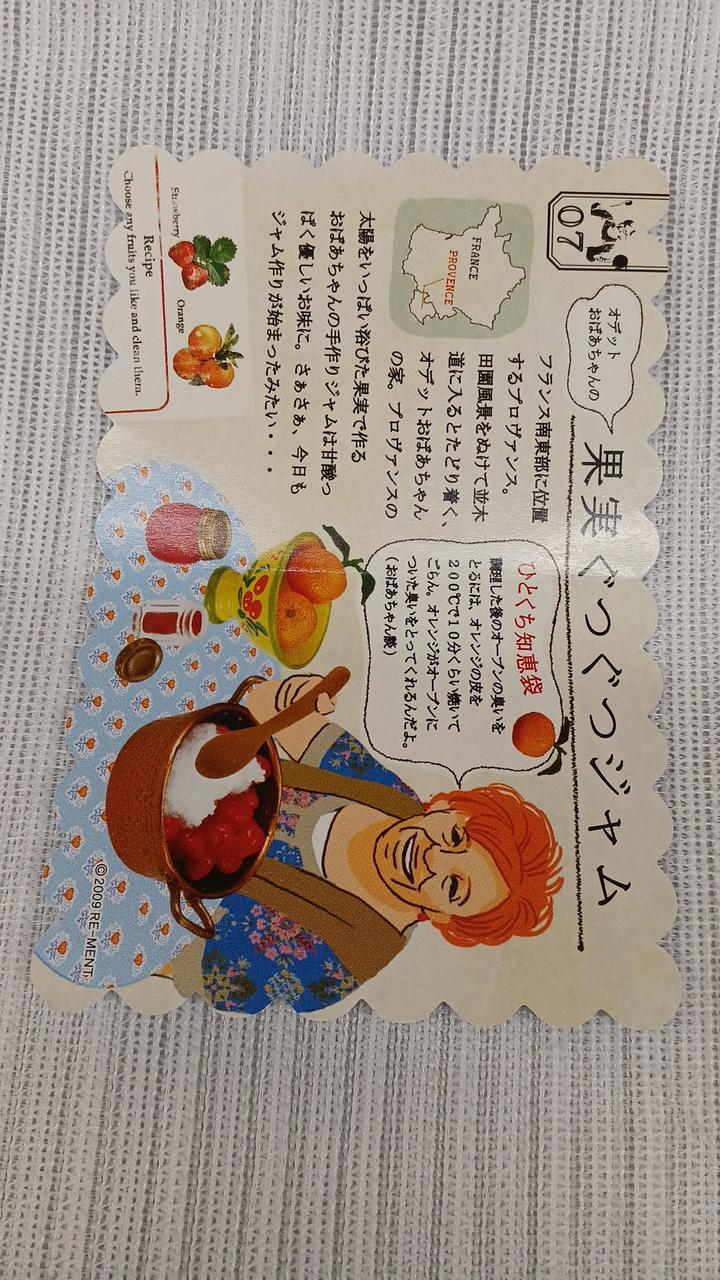 07
オデット
おばあちゃんの
果実ぐつぐつジャム
FRANCE
PROVENCE
フランス南東部に位置
するプロヴァンス。
田園風景をぬけて並木
道に入るとたどり着く、
オデットおばあちゃん
の家。プロヴァンスの
太陽をいっぱい浴びた果実で作る
おばあちゃんの手作りジャムは甘酸っ
ぱく優しいお味に。さぁさぁ、今日も
ジャム作りが始まったみたい・・・
ひとくち知恵袋
調理した後のオーブンの臭いを
とるには、オレンジの皮を
200℃で10分くらい焼いて
ごらん。オレンジがオーブンに
ついた臭いをとってくれるんだよ。
(おばあちゃん談)
Strawberry
Orange
Recipe
Choose any fruits you like and clean them.
©2009 RE-MENT